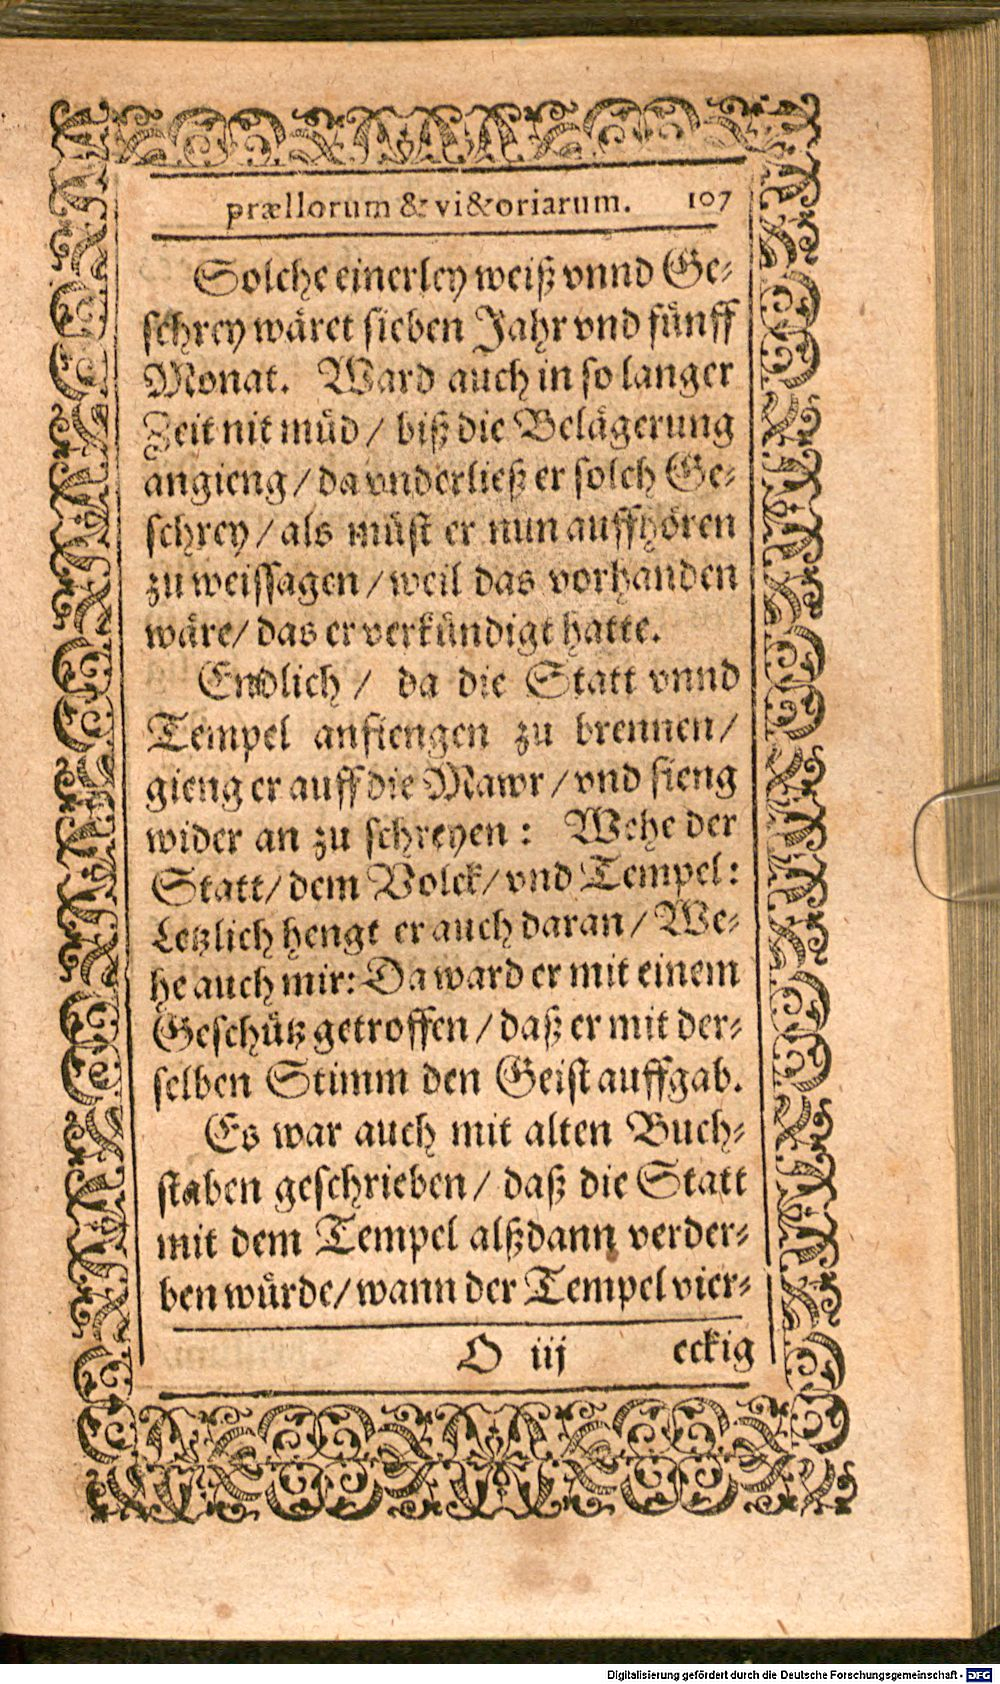 prællorum & vi&oriarum. 107
Solche einerley weiß vnnd Ge-
schrey wäret sieben Jahr vnd fünff
Monat. Ward auch in so langer
Zeit nit müd / biß die Belägerung
angieng / da vnderließ er solch Ge-
schrey / als müst er nun auffhören
zu weissagen / weil das vorhanden
wäre / das er verkündigt hatte.
Endlich / da die Statt vnnd
Tempel anfiengen zu brennen /
gieng er auff die Mawr / vnd fieng
wider an zu schreyen : Wehe der
Statt / dem Volck / vnd Tempel :
Letzlich hengt er auch daran / We-
he auch mir: Da ward er mit einem
Geschütz getroffen / daß er mit der-
selben Stimm den Geist auffgab.
Es war auch mit alten Buch-
staben geschrieben / daß die Statt
mit dem Tempel alßdann verder-
ben würde / wann der Tempel vier-
O iij eckig
Digitalisierung gefördert durch die Deutsche Forschungsgemeinschaft - DFG